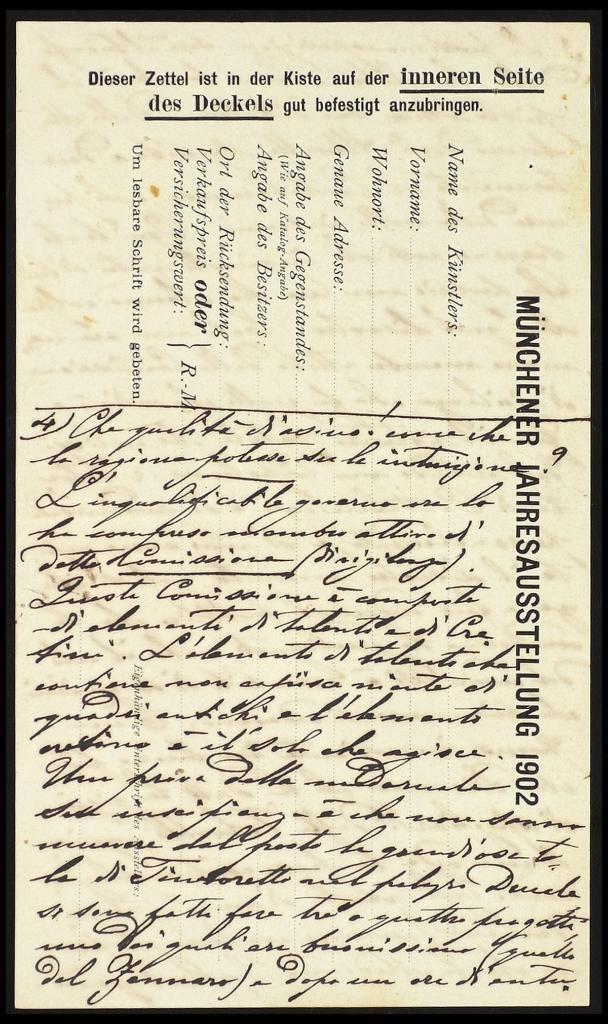 Dieser Zettel ist in der Kiste auf der inneren Seite
des Deckels gut befestigt anzubringen.
MÜNCHENER JAHRESAUSSTELLUNG 1902
Name des Künstlers:
Vorname:
Wohnort:
Genaue Adresse:
Angabe des Gegenstandes:
(Wie auf Katalog-Angabe)
Angabe des Besitzers:
Ort der Rücksendung:
Verkaufspreis oder
Versicherungswert: } R.-M
Um lesbare Schrift wird gebeten.
Eigenhändige Unterschrift des Ausstellers:
9
4) Che qualità di asino: come che
la ragione potesse su la intuizione
L'inqualificabile governo ora lo
ha compreso membro attivo di
detta Comissione
Questa Comissione è composta
di elementi di talento e di Cre
tini. L'elemento di talento che
contiene non capisce niente di
quadri antichi e l'elemento
cretino è il solo che agisce.
Una prova della
sua è che non sanno
muovere dal posto la grandiosa te
la di Tintoretto nel palazzo Ducale
si sono fatti fare tre o quattro progetti
uno dei quali era buonissimo (quello
del Zennaro) e dopo un